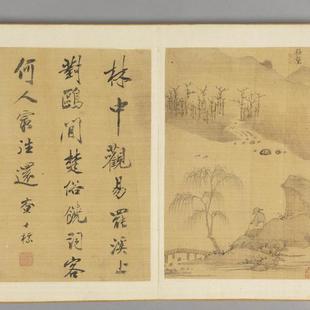 林中觀易罷溪上
對鷗閒楚俗饒詞客
何人最往還 查士標
梅壑